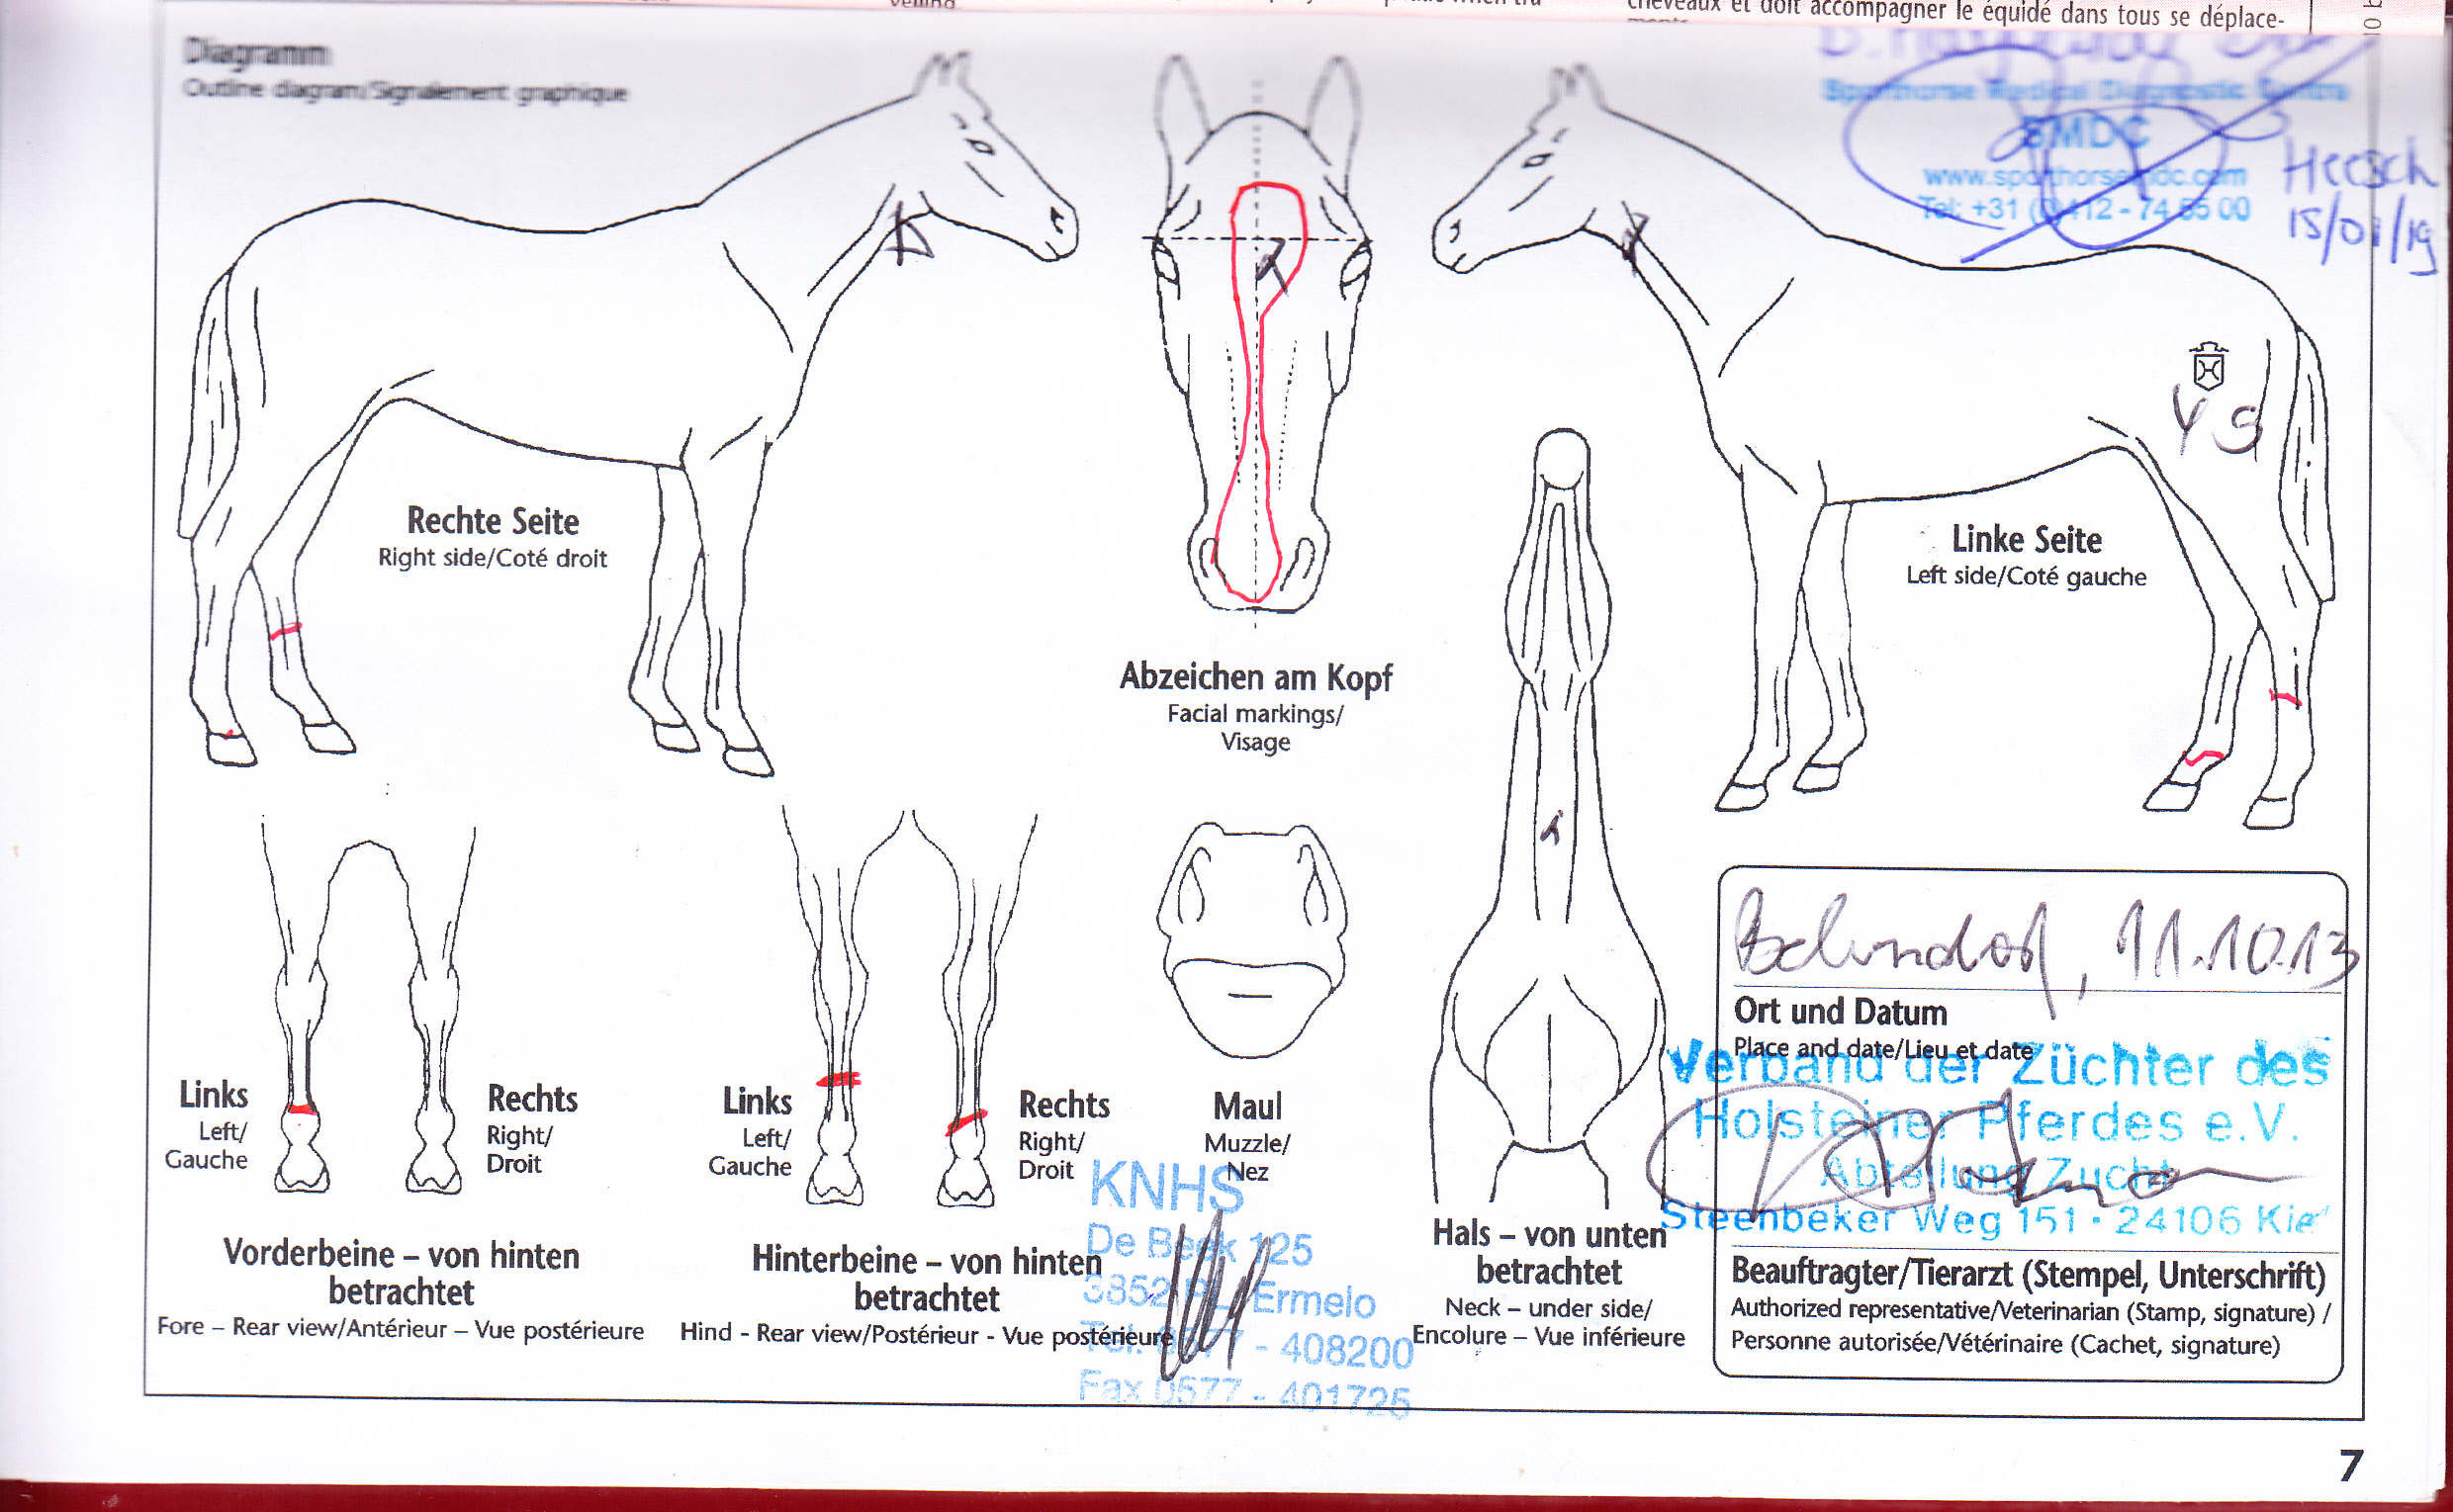 cheveaux et doit accompagner le équidé dans tous se déplace-
Diagramm
Outline diagram/Signalement graphique
Sporthorse Medical Diagnostic Centre
SMDC
www.sporthorsesmdc.com
Tel: +31 (0)412 - 74 55 00
Heesch
15/01/19
Y S
Rechte Seite
Right side/Coté droit
Linke Seite
Left side/Coté gauche
Abzeichen am Kopf
Facial markings/
Visage
Links
Left/
Gauche
Rechts
Right/
Droit
Links
Left/
Gauche
Rechts
Right/
Droit
Maul
Muzzle/
Nez
Vorderbeine – von hinten
betrachtet
Fore – Rear view/Antérieur – Vue postérieure
Hinterbeine – von hinten
betrachtet
Hind - Rear view/Postérieur - Vue postérieure
KNHS
De Beek 125
3852 Ermelo
Tel. 0577 - 408200
Fax 0577 - 401725
Hals – von unten
betrachtet
Neck – under side/
Encolure – Vue inférieure
11.10.13
Ort und Datum
Place and date/Lieu et date
Verband der Züchter des
Holsteiner Pferdes e.V.
Abteilung Zucht
Steenbeker Weg 151 · 24106 Kiel
Beauftragter/Tierarzt (Stempel, Unterschrift)
Authorized representative/Veterinarian (Stamp, signature) /
Personne autorisée/Vétérinaire (Cachet, signature)
7